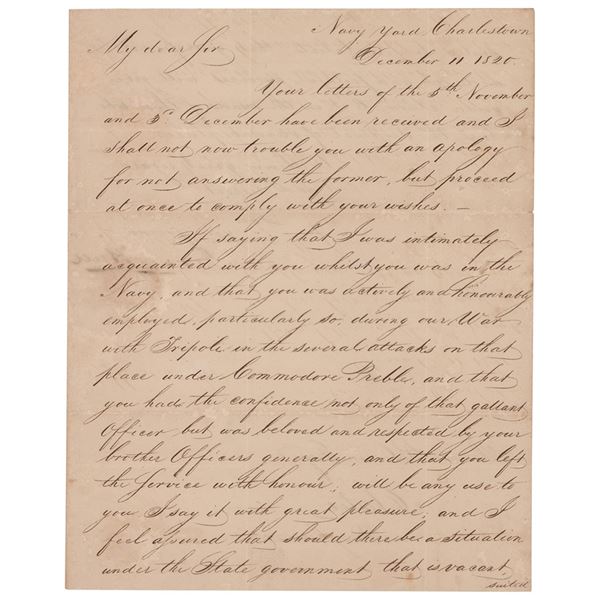 Navy Yard Charlestown
December 11 1820
My dear Sir
Your letters of the 5th November
and 5th December have been received and I
shall not now trouble you with an apology
for not answering the former, but proceed
at once to comply with your wishes. —
If saying that I was intimately
acquainted with you whilst you was in the
Navy, and that you was actively and honourably
employed, particularly so, during our War
with Tripoli in the several attacks on that
place under Commodore Preble, and that
you had the confidence not only of that gallant
Officer but was beloved and respected by your
brother Officers generally, and that you left
the Service with honour, will be any use to
you I say it with great pleasure, and I
feel assured that should there be a situation
under the State government that is vacant
suited